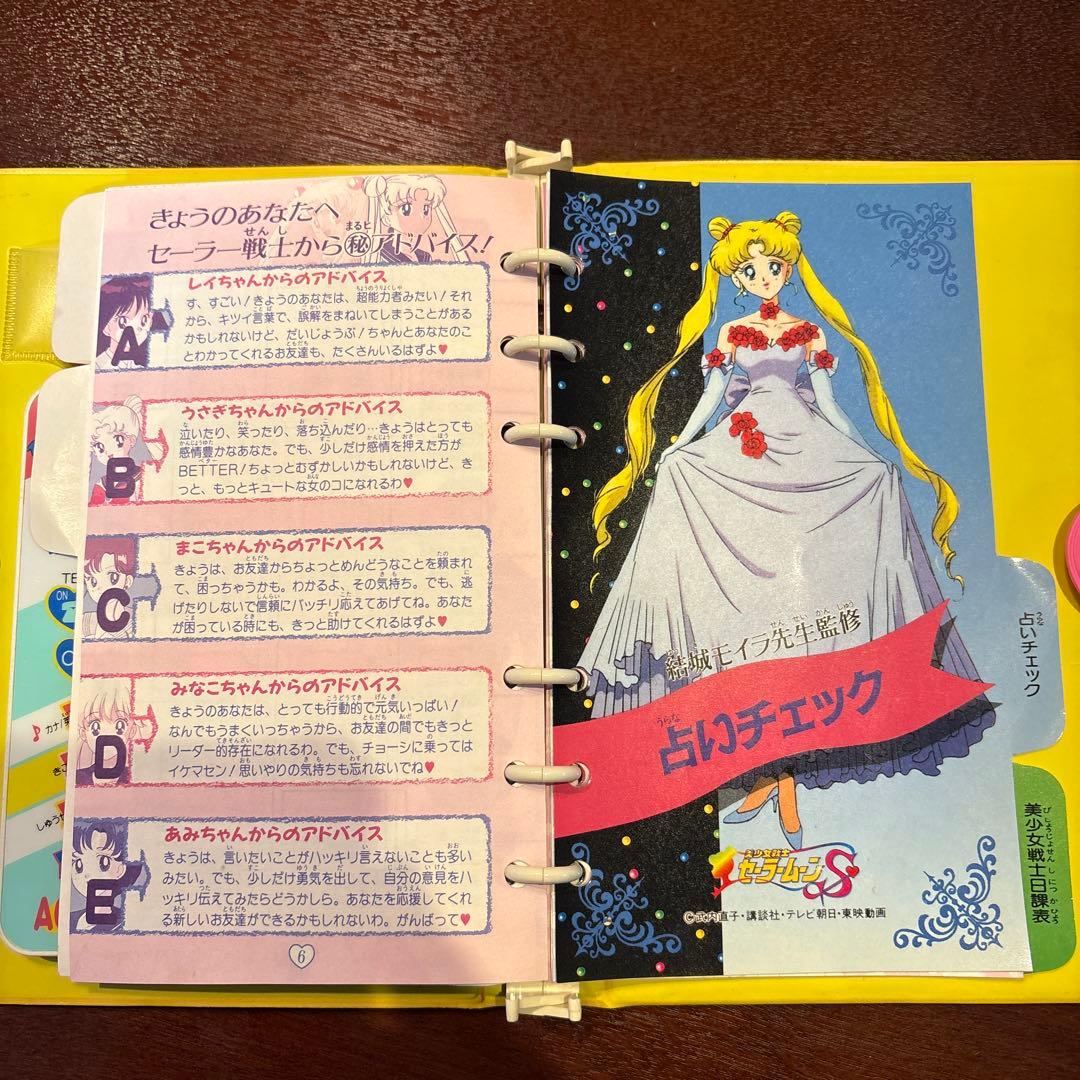 きょうのあなたへ
セーラー戦士から㊙アドバイス！
A
レイちゃんからのアドバイス
す、すごい！きょうのあなたは、超能力者みたい！それ
から、キツイ言葉で、誤解をまねいてしまうことがある
かもしれないけど、だいじょうぶ！ちゃんとあなたのこ
とわかってくれるお友達も、たくさんいるはずよ♥
B
うさぎちゃんからのアドバイス
泣いたり、笑ったり、落ち込んだり…きょうはとっても
感情豊かなあなた。でも、少しだけ感情を押えた方が
BETTER！ちょっとむずかしいかもしれないけど、き
っと、もっとキュートな女のコになれるわ♥
C
まこちゃんからのアドバイス
きょうは、お友達からちょっとめんどうなことを頼まれ
て、困っちゃうかも。わかるよ、その気持ち。でも、逃
げたりしないで信頼にバッチリ応えてあげてね。あなた
が困っている時にも、きっと助けてくれるはずよ♥
D
みなこちゃんからのアドバイス
きょうのあなたは、とっても行動的で元気いっぱい！
なんでもうまくいっちゃうから、お友達の間でもきっと
リーダー的存在になれるわ。でも、チョーシに乗っては
イケマセン！思いやりの気持ちも忘れないでね♥
E
あみちゃんからのアドバイス
きょうは、言いたいことがハッキリ言えないことも多い
みたい。でも、少しだけ勇気を出して、自分の意見をハ
ッキリ伝えてみたらどうかしら。あなたを応援してくれ
る新しいお友達ができるかもしれないわ。がんばって♥
6
結城モイラ先生監修
占いチェック
美少女戦士
セーラームーンS
©武内直子・講談社・テレビ朝日・東映動画
占いチェック
美少女戦士日課表
TE
ON
カナ
しゅう